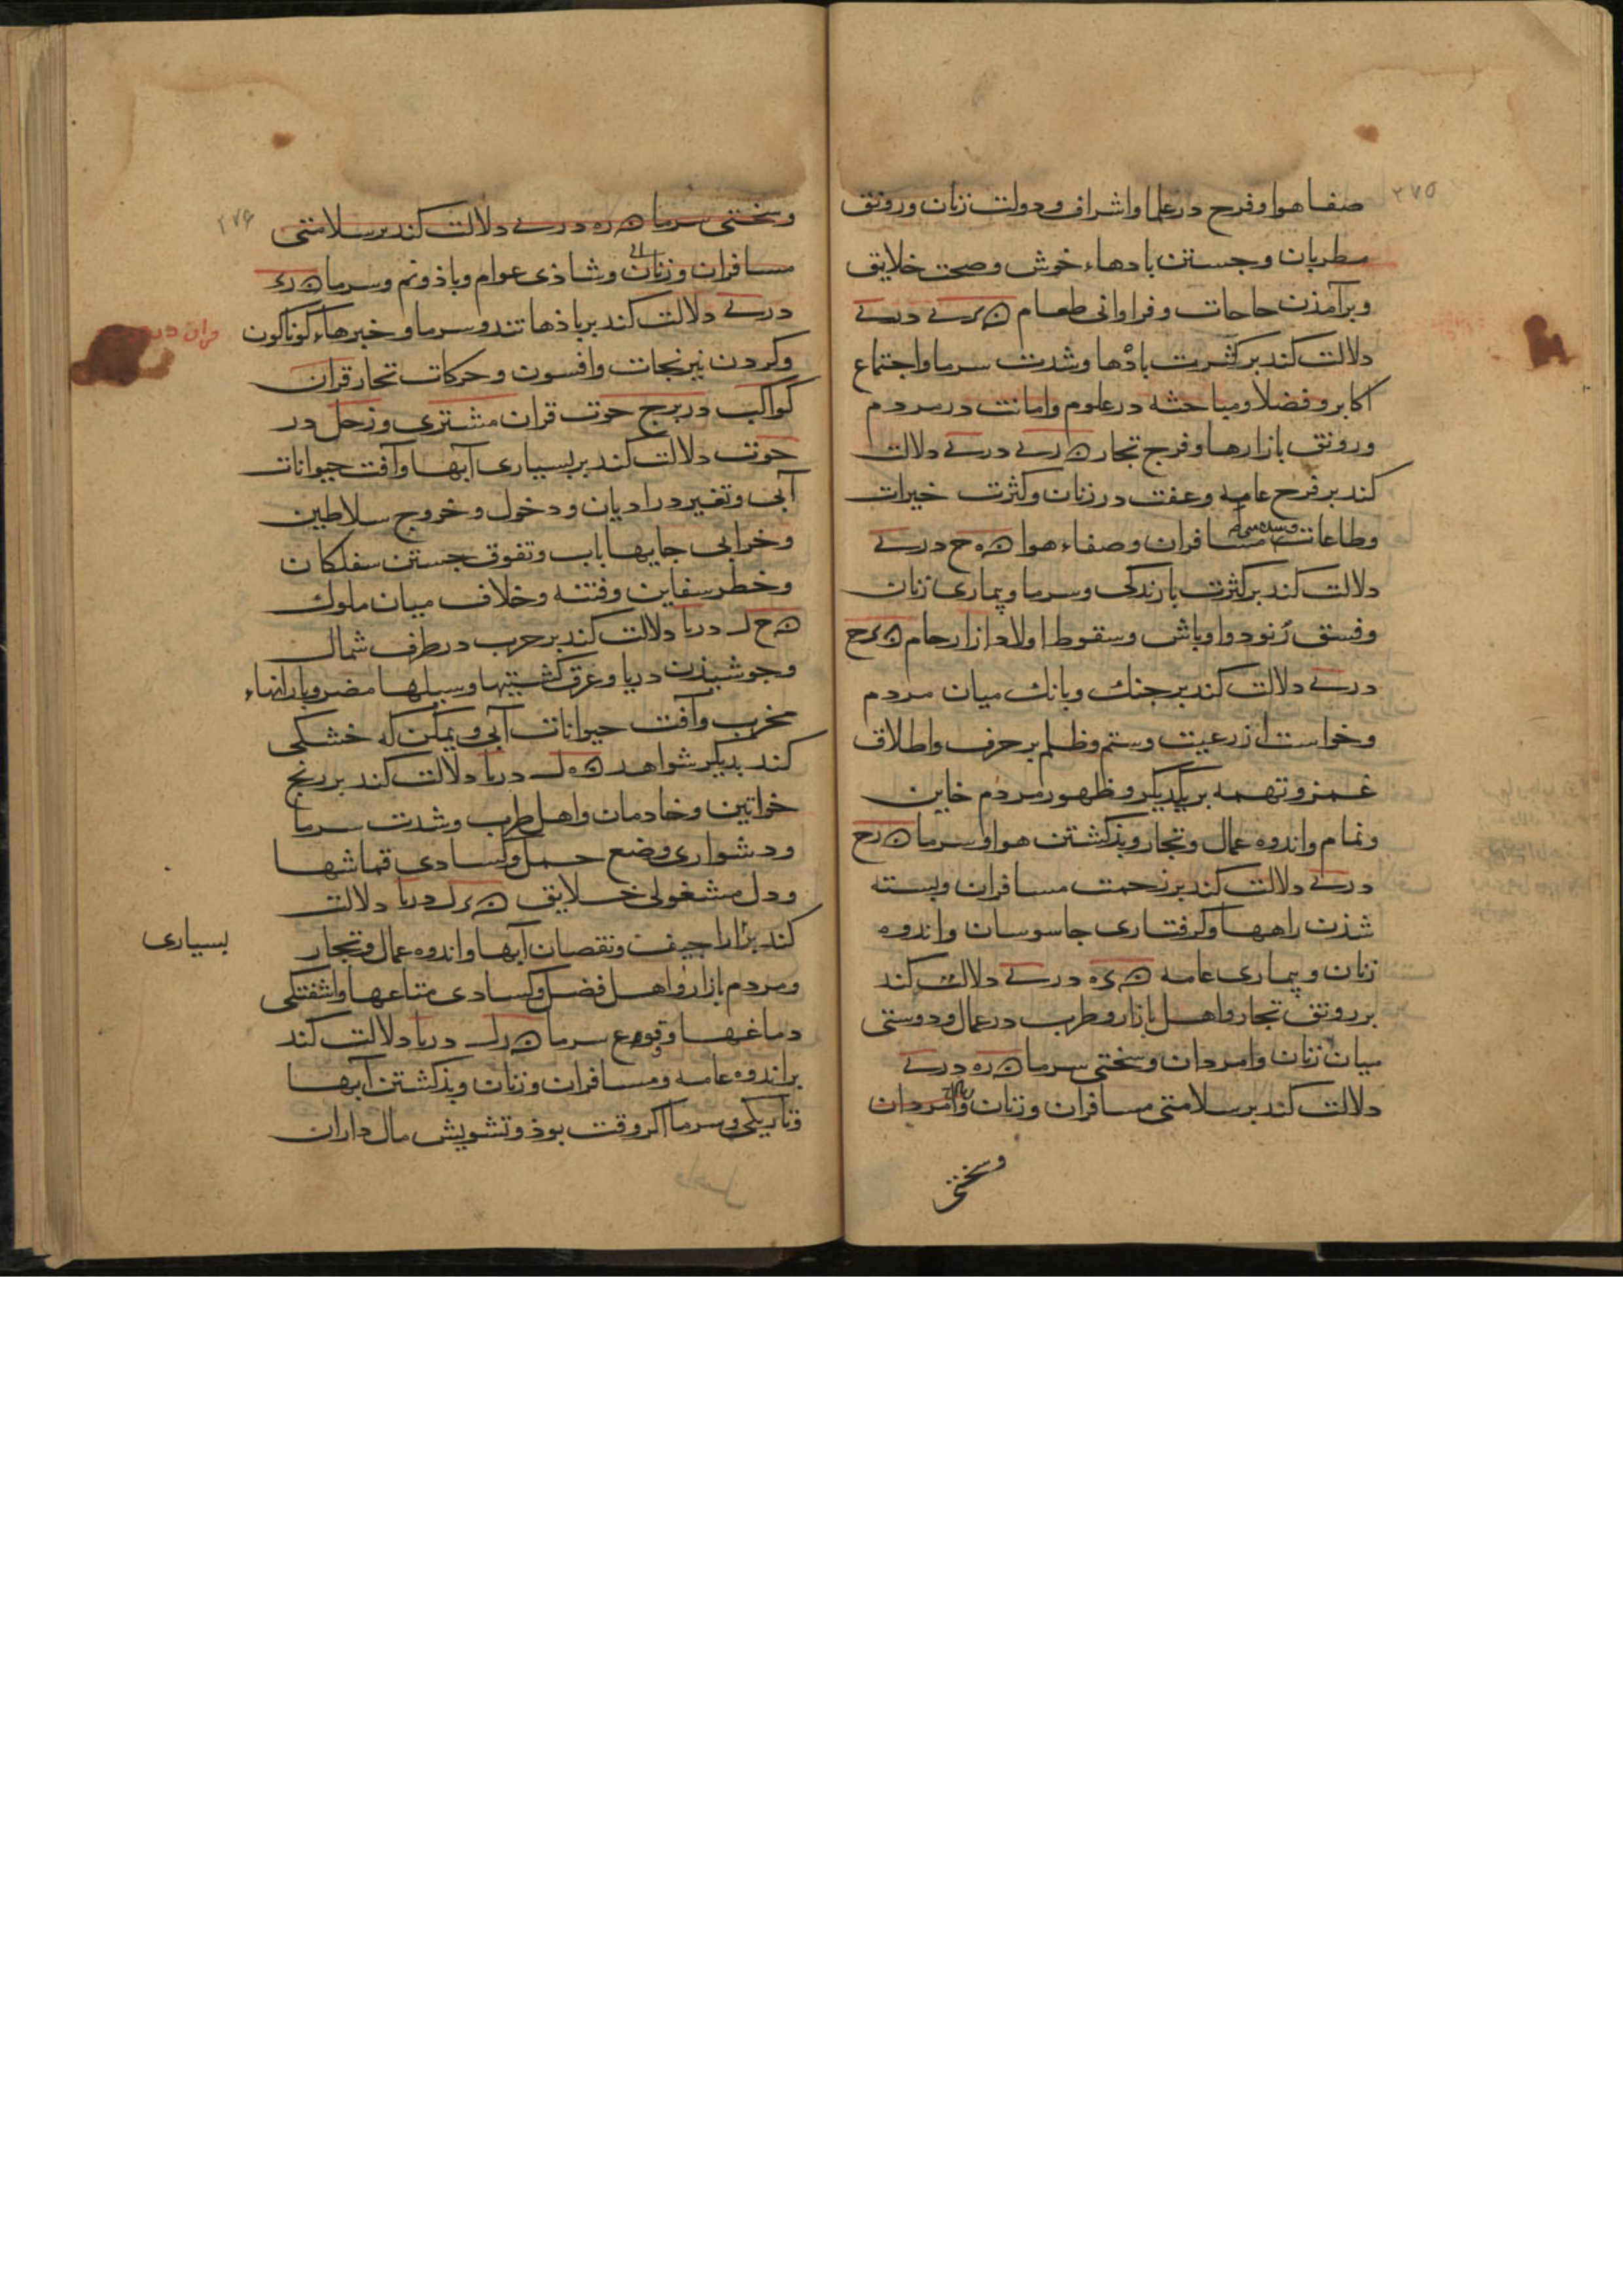 ۲۷۵
صفا هوا و فرح در علما و اشراف و دولت زنان و رونق
مطربان و جستن بادهاء خوش و صحت خلایق
و برآمذن حاجات و فراوانی طعام در
دلالت کند بر کثرت بادها و شدت سرما و اجتماع
اکابر و فضلا و مباحثه در علوم و امانت در مردم
و رونق بازارها و فرح تجار در دلالت
کند بر فرح عامه و عفت در زنان و کثرت خیرات
و طاعات مسافران و صفاء هوا در
دلالت کند بر کثرت بارندکی و سرما و بیماری زنان
و فسق رنود و اوباش و سقوط اولاد از ارحام
در دلالت کند بر جنک و بانک میان مردم
و خواست از رعیت و ستم و ظلم بر حرف و اطلاق
غمز و تهمه بر یکدیکر و ظهور مردم خاین
و نمام و اندوه عمال و تجار و بذکشتن هوا و سرما
در دلالت کند بر زحمت مسافران و بسته
شذن راهها و کرفتاری جاسوسان و اندوه
زنان و بیماری عامه در دلالت کند
بر رونق تجار و اهل بازار و طرب در عمال و دوستی
میان زنان و امردان و سختی سرما در
دلالت کند بر سلامتی مسافران و زنان و امردان
و سختی
۲۷۶
و سختی سرما در دلالت کند بر سلامتی
مسافران و زنان و شاذی عوام و باذ و نم و سرما
در دلالت کند بر باذها تند و سرما و خبرهاء کوناکون
و کردن نیرنجات و افسون و حرکات تجار قران
کواکب در برج حوت قران مشتری و زحل در
حوت دلالت کند بر بسیاری آبها و آفت حیوانات
آبی و تغیر در ادیان و دخول و خروج سلاطین
و خرابی جایها باب و تفوق جستن سفلکان
و خطر سفاین و فتنه و خلاف میان ملوک
دلالت کند بر حرب در طرف شمال
و جوشیذن دریا و غرق کشتیها و سیلها مضر و بارانهاء
مخرب و آفت حیوانات آبی و یمکن که خشکی
کند بدیکر شواهد دلالت کند بر رنج
خواتین و خادمان و اهل طرب و شدت سرما
و دشواری وضع حمل و کسادی قماشها
و دل مشغولی خلایق دلالت
کند بر اراجیف و نقصان آبها و اندوه عمال و تجار
بسیاری
و مردم بازار و اهل فضل و کسادی متاعها و اشفتکی
دماغها و وقوع سرما دلالت کند
بر اندوه عامه و مسافران و زنان و بذکشتن آبها
و تاریکی و سرما اکر وقت بوذ و تشویش مال داران